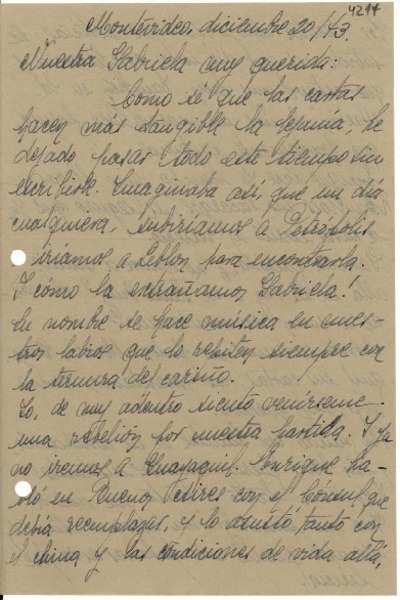 4217
Montevideo, diciembre 20/43.
Nuestra Gabriela muy querida:
Como sé que las cartas
hacen más tangible la lejanía, he
dejado pasar todo este tiempo sin
escribirle. Imaginaba así, que un día
cualquiera, subiríamos a Petrópolis
iríamos a Leblon para encontrarla.
I cómo la extrañamos Gabriela!
Su nombre se hace música en nues-
tros labios que lo repiten siempre con
la ternura del cariño.
Yo, de muy adentro siento venirseme
una rebelión por nuestra partida. I ya
no iremos a Guayaquil. Enrique ha-
bló en Buenos Aires con el Cónsul que
debía reemplazar, y lo asustó, tanto con
el clima y las condiciones de vida allá,